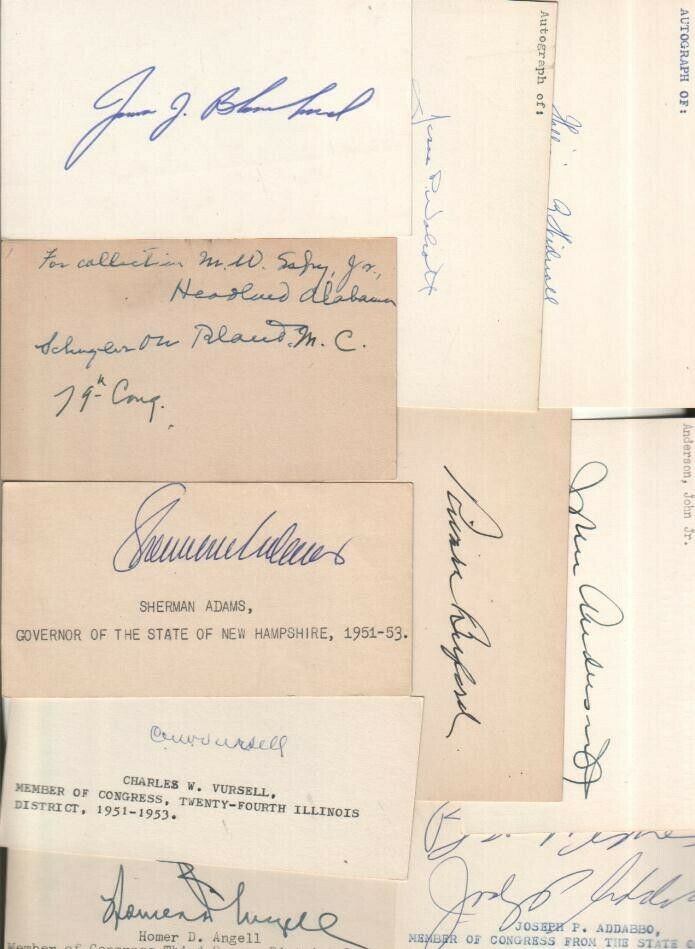 James J. Blanchard
Autograph of:
Jesse P. Wolcott
AUTOGRAPH OF:
For collection M. W. Espy, Jr.,
Headland Alabama
Schuyler Otis Bland, M. C.
79th Cong.
Sherman Adams
SHERMAN ADAMS,
GOVERNOR OF THE STATE OF NEW HAMPSHIRE, 1951-53.
Anderson, John Jr.
John Anderson Jr
C. W. Vursell
CHARLES W. VURSELL,
MEMBER OF CONGRESS, TWENTY-FOURTH ILLINOIS
DISTRICT, 1951-1953.
Homer D. Angell
Homer D. Angell
Joseph P. Addabbo
JOSEPH P. ADDABBO,
MEMBER OF CONGRESS FROM THE STATE